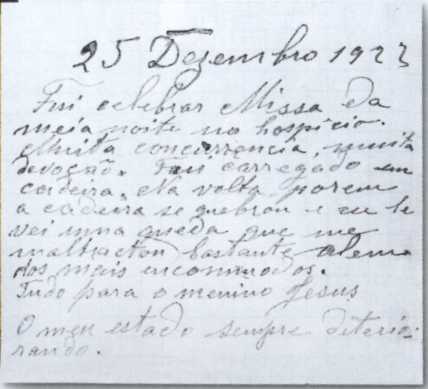 25 Dezembro 1923
Fui celebrar Missa da
meia noite no hospicio.
Muita concurrencia, muita
devoção. Fui carregado em
cadeira. Na volta porem
a cadeira se quebrou e eu le
vei uma queda que me
maltractou bastante alem
dos mais incommodos.
Tudo para o menino Jesus
O meu estado sempre diterio-
rando.